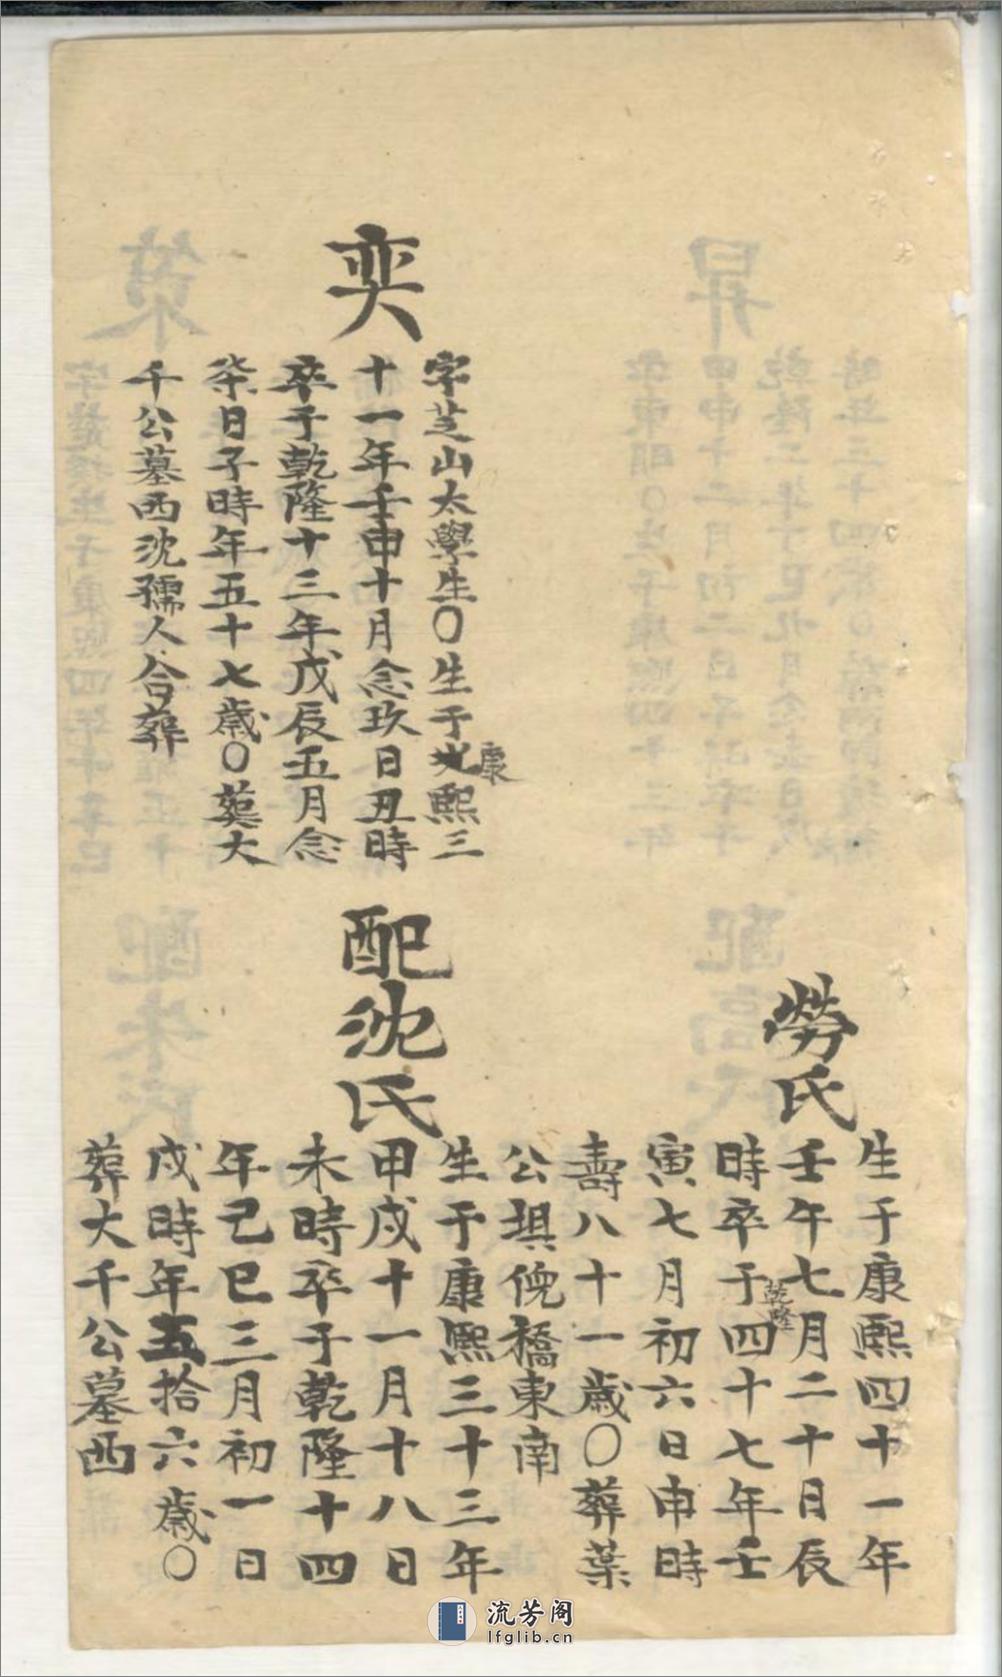 勞氏
生于康熙四十一年
壬午七月二十月辰
時卒于乾隆四十七年壬
寅七月初六日申時
壽八十一歲〇葬葉
公墳倪橋東南
奕
字芝山太學生〇生于康熙三
十一年壬申十月念玖日丑時
卒于乾隆十三年戊辰五月念
柒日子時年五十七歲〇葬大
千公墓西沈孺人合葬
配沈氏
生于康熙三十三年
甲戌十一月十八日
未時卒于乾隆十四
年己巳三月初一日
戌時年五拾六歲〇
葬大千公墓西
流芳阁
lfglib.cn